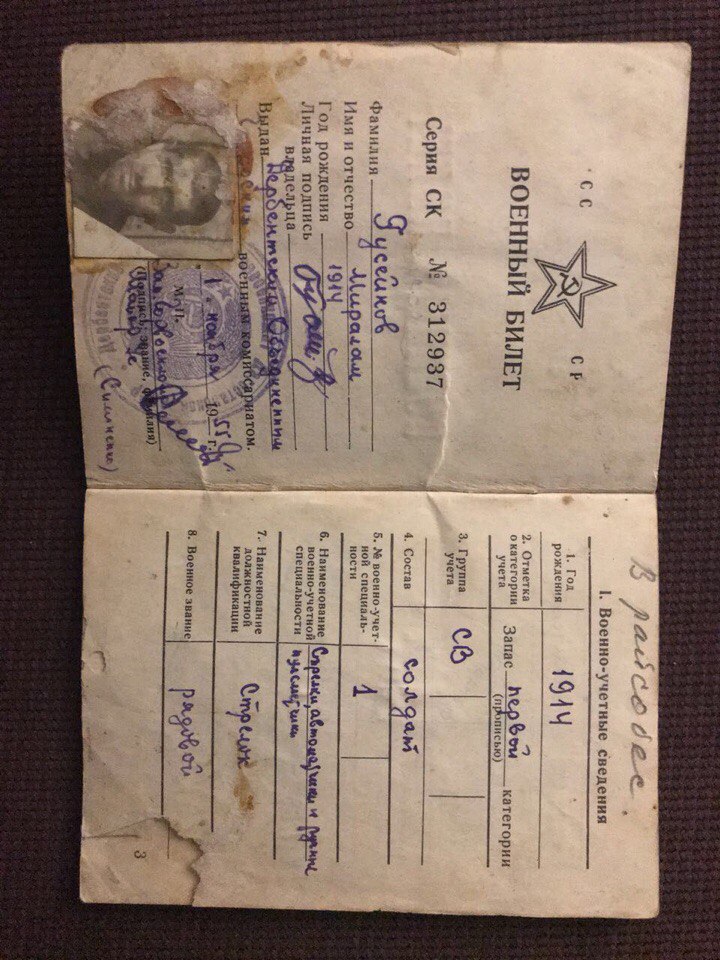 СССР
ВОЕННЫЙ БИЛЕТ
Серия СК № 312937
Фамилия Гусейнов
Имя и отчество Миралам
Год рождения 1914
Личная подпись
владельца
Выдан Дербентский Объединенным
военным комиссариатом.
1 ноября 1955 г.
М.П.
(Подпись, звание, фамилия)
В райсобес.
I. Военно-учетные сведения
1. Год рождения 1914
2. Отметка о категории учета Запас первой категории
(прописью)
3. Группа учета СВ
4. Состав солдат
5. № военно-учетной специальности 1
6. Наименование военно-учетной специальности Стрелки, автоматчики и ручные пулеметчики
7. Наименование должностной квалификации Стрелок
8. Военное звание рядовой
3